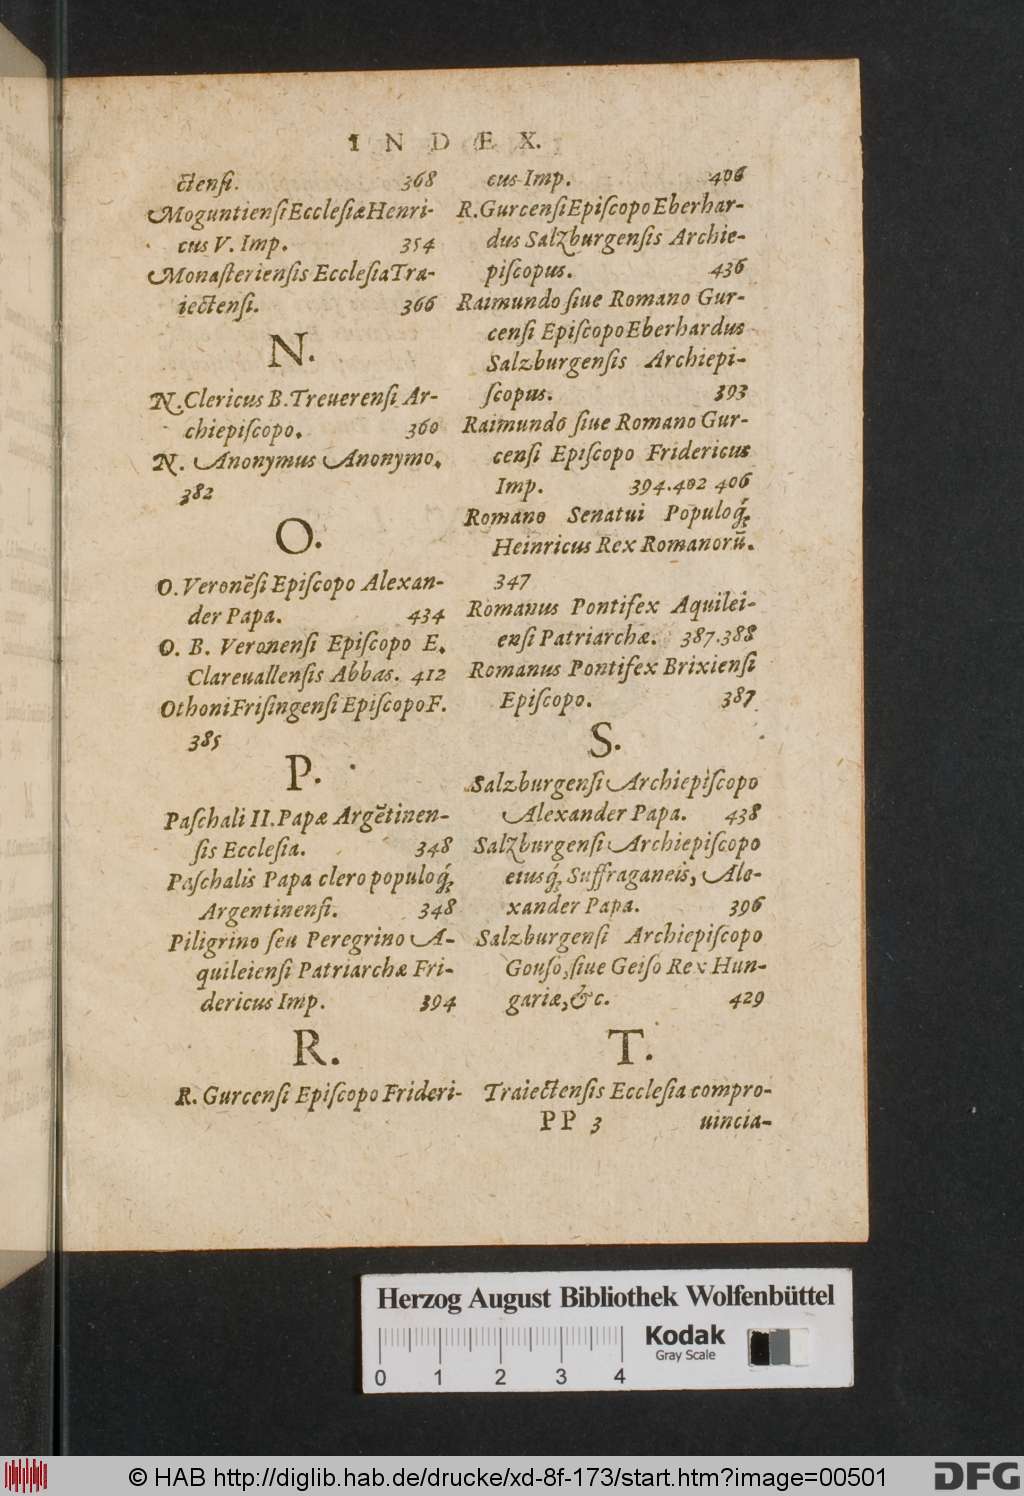 INDEX.
ctensi. 368
Moguntiensi Ecclesiæ Henri-
cus V. Imp. 354
Monasteriensis Ecclesia Tra-
iectensi. 366
N.
N. Clericus B. Treuerensi Ar-
chiepiscopo. 360
N. Anonymus Anonymo.
382
O.
O. Veronẽsi Episcopo Alexan-
der Papa. 434
O. B. Veronensi Episcopo E.
Clareuallensis Abbas. 412
Othoni Frisingensi Episcopo F.
385
P.
Paschali II. Papæ Argẽtinen-
sis Ecclesia. 348
Paschalis Papa clero populoq́;
Argentinensi. 348
Piligrino seu Peregrino A-
quileiensi Patriarchæ Fri-
dericus Imp. 394
R.
R. Gurcensi Episcopo Frideri-
cus Imp. 406
R. Gurcensi Episcopo Eberhar-
dus Salzburgensis Archie-
piscopus. 436
Raimundo siue Romano Gur-
censi Episcopo Eberhardus
Salzburgensis Archiepi-
scopus. 393
Raimundo siue Romano Gur-
censi Episcopo Fridericus
Imp. 394.402 406
Romano Senatui Populoq́;
Heinricus Rex Romanorũ.
347
Romanus Pontifex Aquilei-
ensi Patriarchæ. 387.388
Romanus Pontifex Brixiensi
Episcopo. 387
S.
Salzburgensi Archiepiscopo
Alexander Papa. 438
Salzburgensi Archiepiscopo
eiusq́; Suffraganeis, Ale-
xander Papa. 396
Salzburgensi Archiepiscopo
Gouso, siue Geiso Rex Hun-
gariæ, &c. 429
T.
Traiectensis Ecclesia compro-
PP 3 uincia-
Herzog August Bibliothek Wolfenbüttel
Kodak
Gray Scale
0 1 2 3 4
© HAB http://diglib.hab.de/drucke/xd-8f-173/start.htm?image=00501
DFG